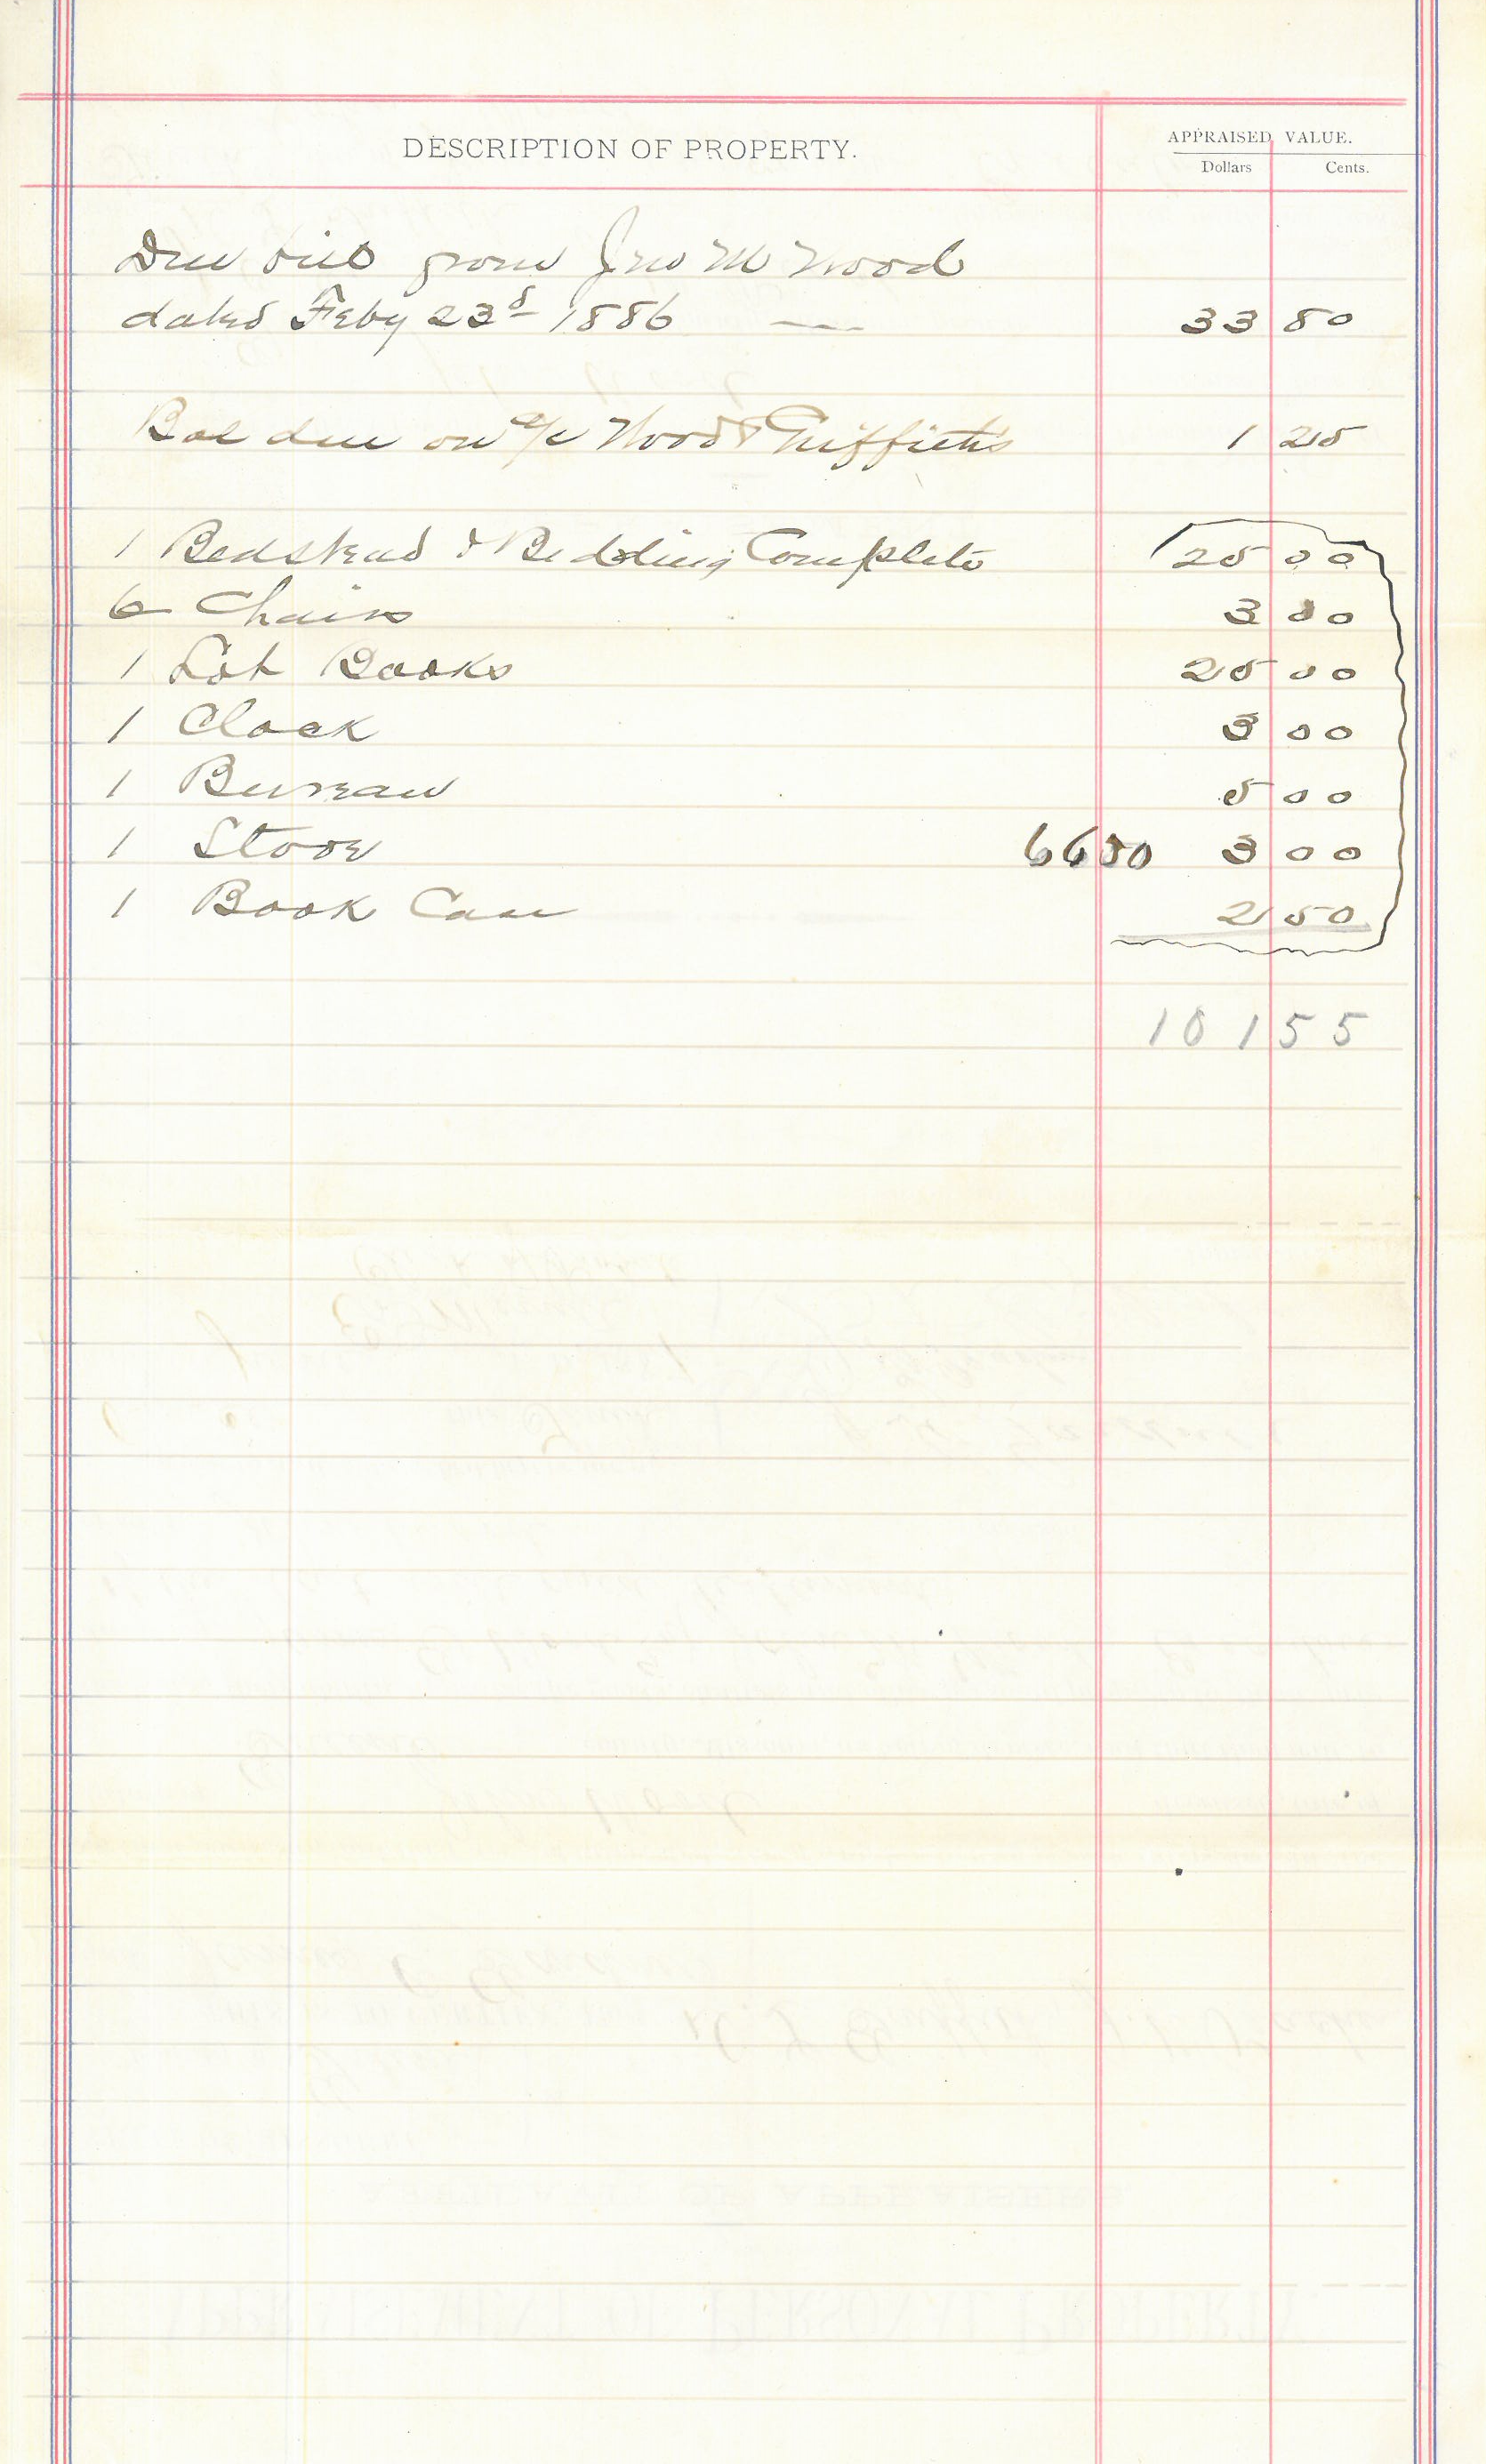 DESCRIPTION OF PROPERTY.
APPRAISED VALUE.
Dollars Cents.
Due bill from Jno M Wood
dated Feby 23d 1886 — 33 80
Bal due on a/c Wood & Griffiths 1 25
1 Bedstead & Bedding Complete 25 00
6 Chairs 3 00
1 Lot Books 25 00
1 Clock 3 00
1 Bureau 5 00
1 Stove 66 50 3 00
1 Book Case 2 50
101 55